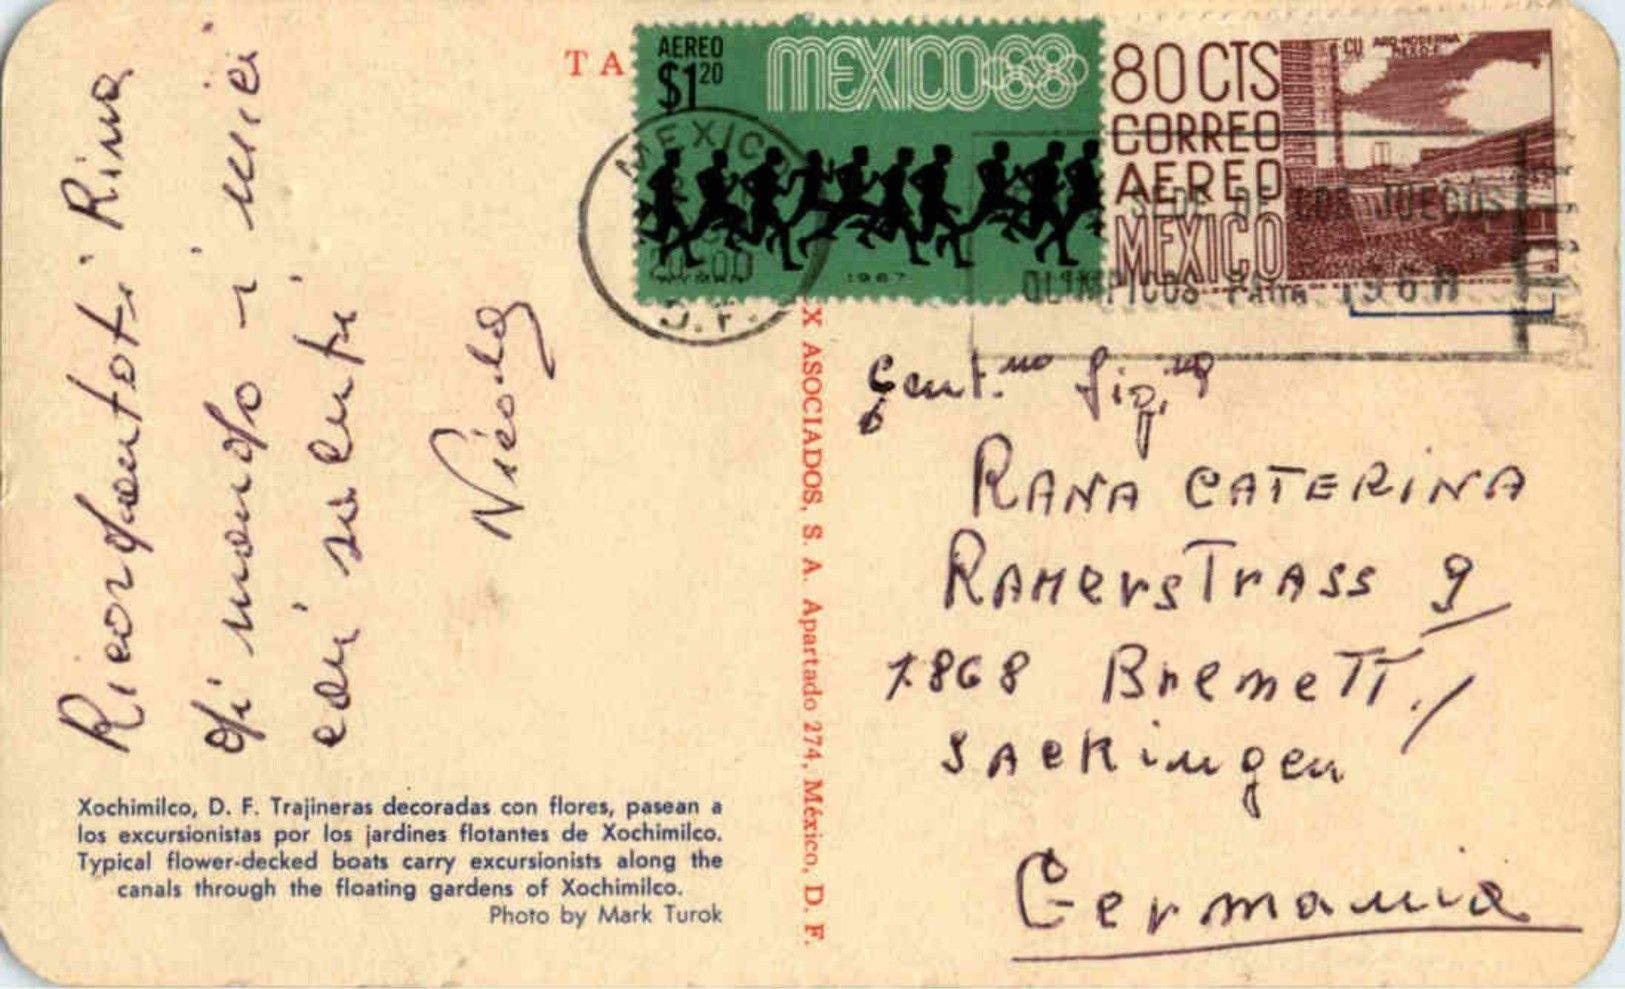 TA
AEREO
$1.20
MEXICO68
WYMAN 1967
80 CTS
CORREO
AEREO
MEXICO
CU ARQ. MODERNA
MEXICO
MEXICO
20-00
D.F.
SEDE DE LOS JUEGOS
OLIMPICOS PARA 1968
Ricordandoti Rina
di mando i miei
cari saluti
Nicola
Xochimilco, D. F. Trajineras decoradas con flores, pasean a
los excursionistas por los jardines flotantes de Xochimilco.
Typical flower-decked boats carry excursionists along the
canals through the floating gardens of Xochimilco.
Photo by Mark Turok
X ASOCIADOS, S. A. Apartado 274, México, D. F.
Gent.ma Sig.na
RANA CATERINA
RAMERSTRASS 9
7868 BremeTT./
SACKingen
Germania